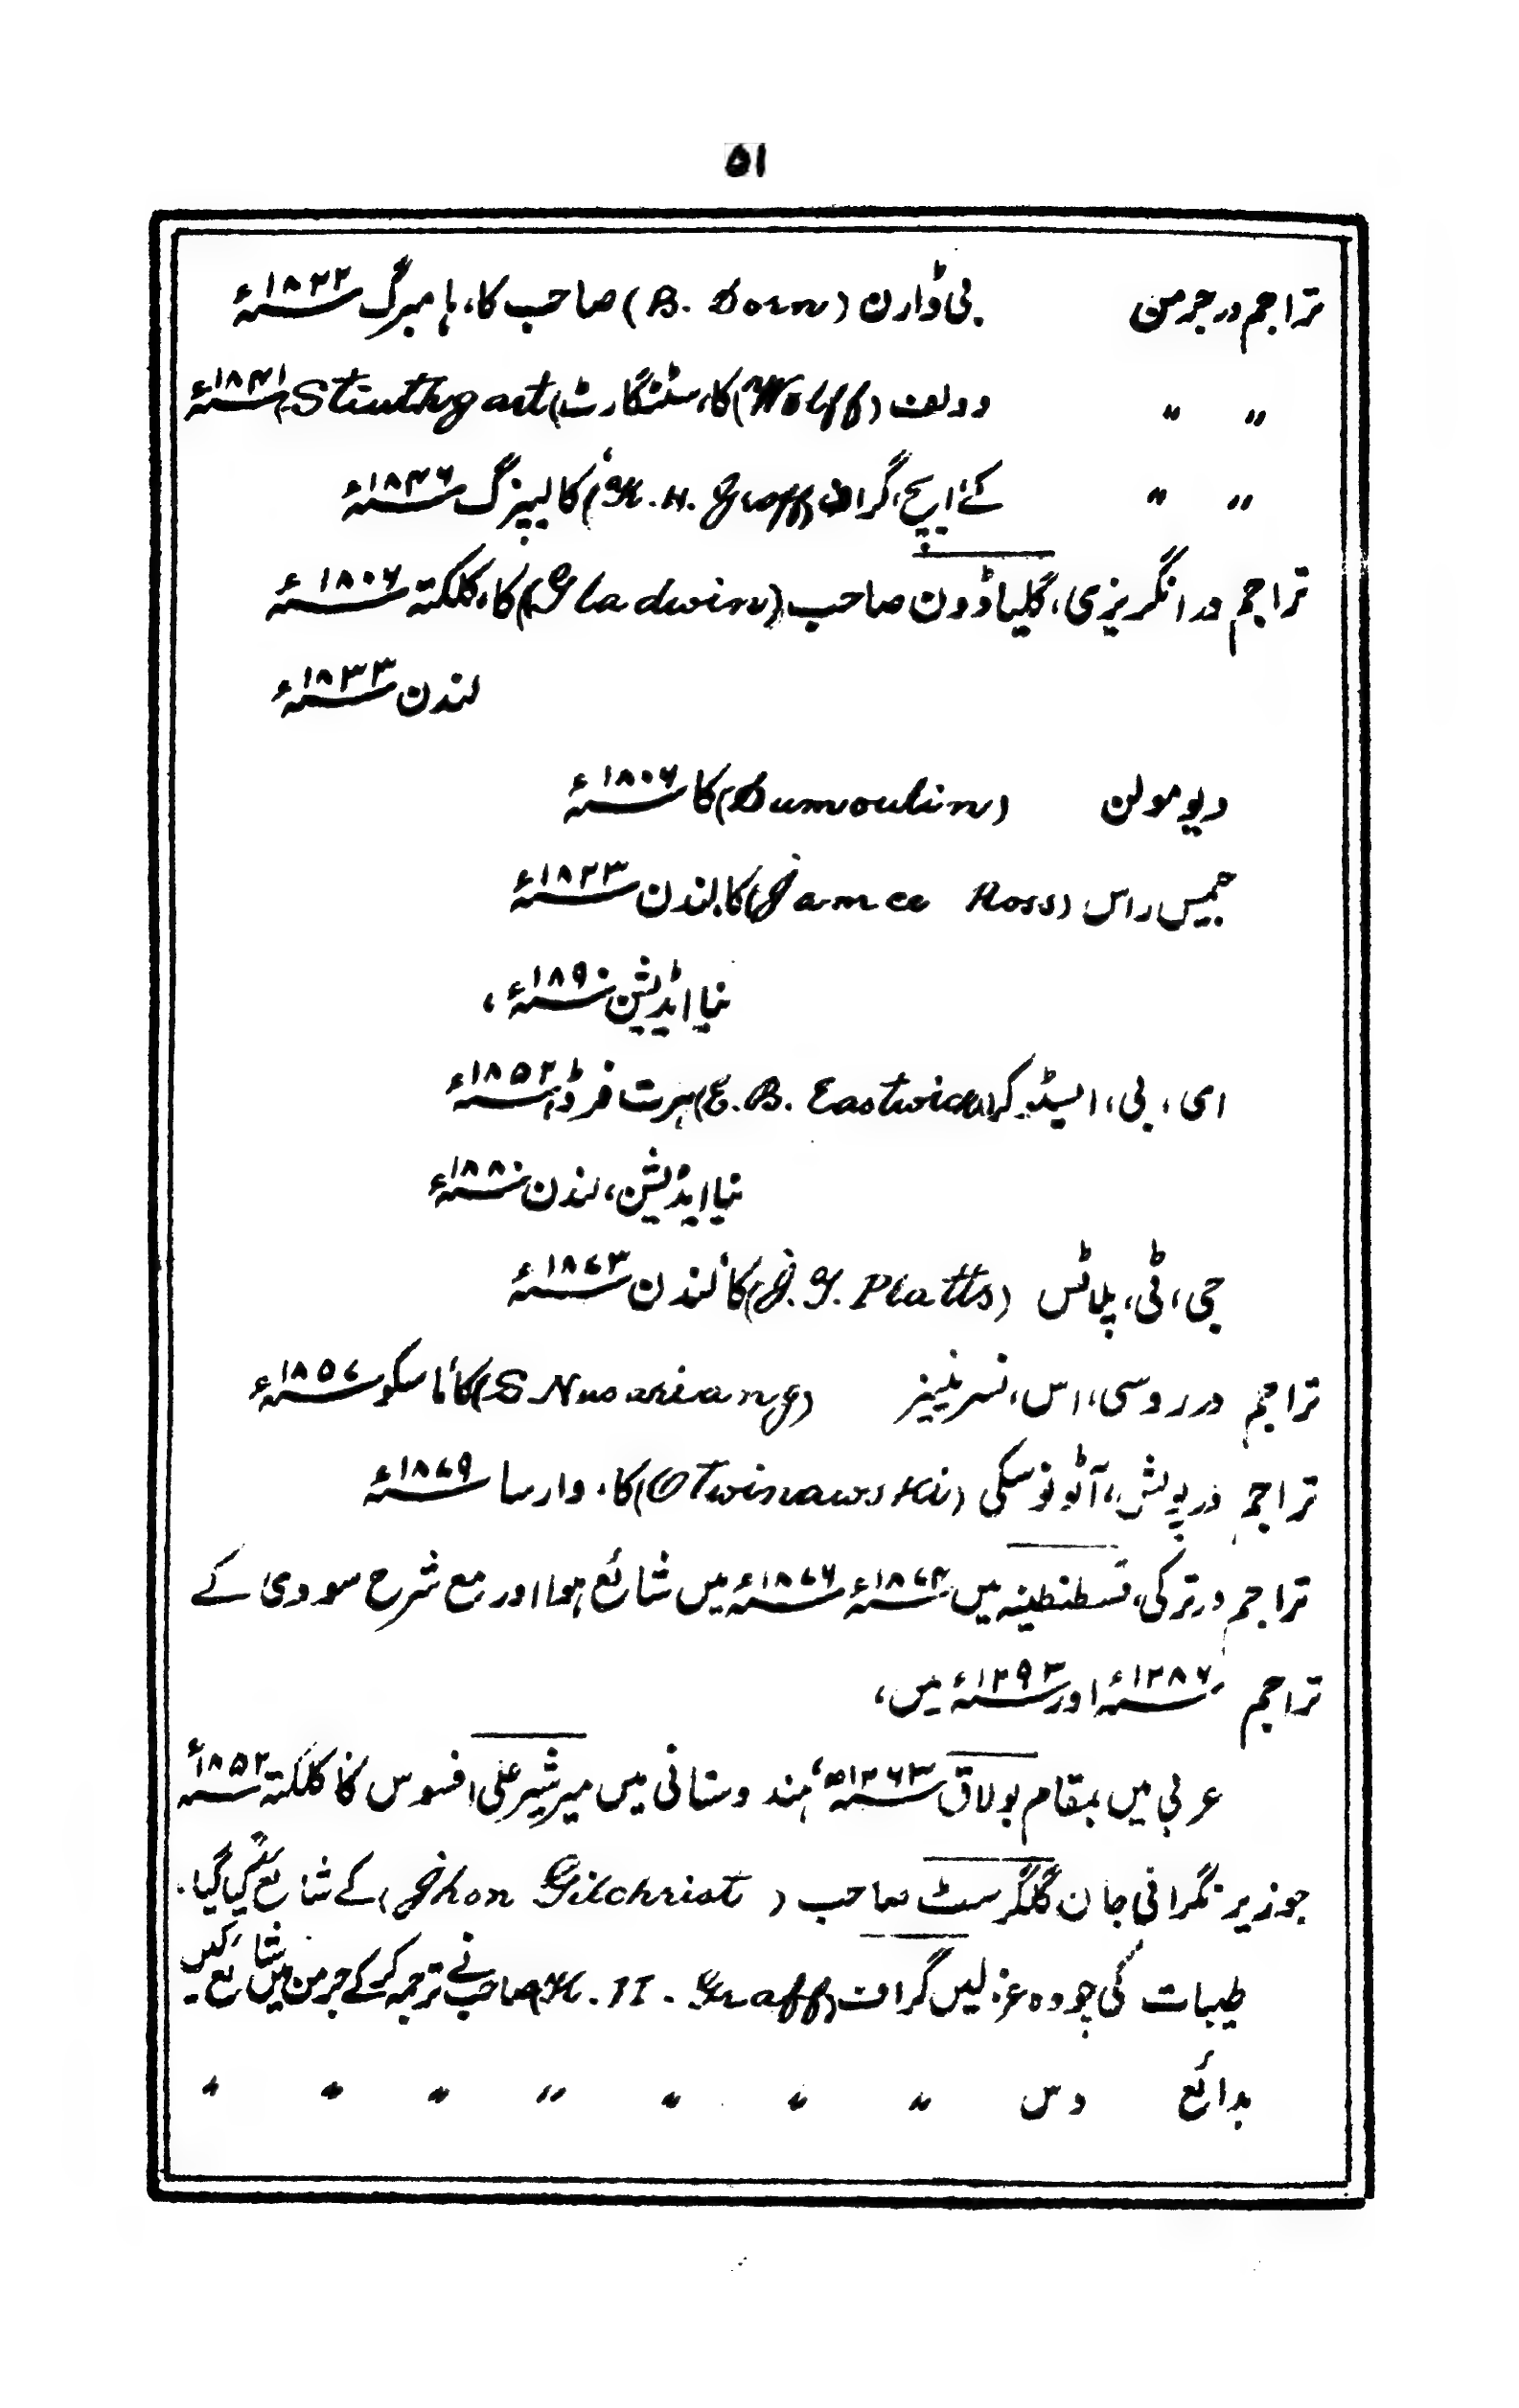 ۵۱
تراجم در جرمن بی ڈارن (B. Dorn) صاحب کا، ہامبرگ ۱۸۲۲ء
〃 〃 وولف (Wolff) کا، سٹنگارٹ (Stiuthgart) ۱۸۴۱ء
〃 〃 کے، ایچ، گراف (K. H. Graff) کا لیپزگ ۱۸۴۶ء
تراجم در انگریزی، گلیاڈون صاحب (Gladwin) کا، کلکتہ ۱۸۰۶ء
لندن ۱۸۳۳ء
دیومولن (Dumoulin) کا ۱۸۰۷ء
جمیس راس (James Ross) کا، لندن ۱۸۲۳ء
نیا ایڈیشن ۱۸۹۰ء،
ای، بی، ایسٹوکر (E. B. Eastwick) ہرت فرڈ، ۱۸۵۲ء
نیا ایڈیشن، لندن ۱۸۸۰ء
جی، ٹی، پلاٹس (J. T. Platts) کا، لندن ۱۸۷۳ء
تراجم در روسی، اس، نسرینیز (S Nusariang) کا، ماسکو ۱۸۵۷ء
تراجم در پولش، آٹونوسکی (OTwinawski) کا، وارسا ۱۸۷۹ء
تراجم در ترکی، قسطنطنیہ میں ۱۸۷۴ء ۱۸۷۶ء میں شائع ہوا اور مع شرح سودی کے
تراجم ۱۲۸۶ء اور ۱۲۹۳ء میں،
عربی میں بمقام بولاق ۱۲۶۳ھ، ہندوستانی میں میر شیر علی افسوس کا کلکتہ ۱۸۵۲ء
جو زیر نگرانی جان گلگرسٹ صاحب (Jhon Gilchrist) کے شائع کیا گیا۔
طیبات کی چودہ غزلیں گراف (K. H. Graff) صاحب نے ترجمہ کرکے جرمن میں شائع کیں۔
بدائع دس 〃 〃 〃 〃 〃 〃 〃